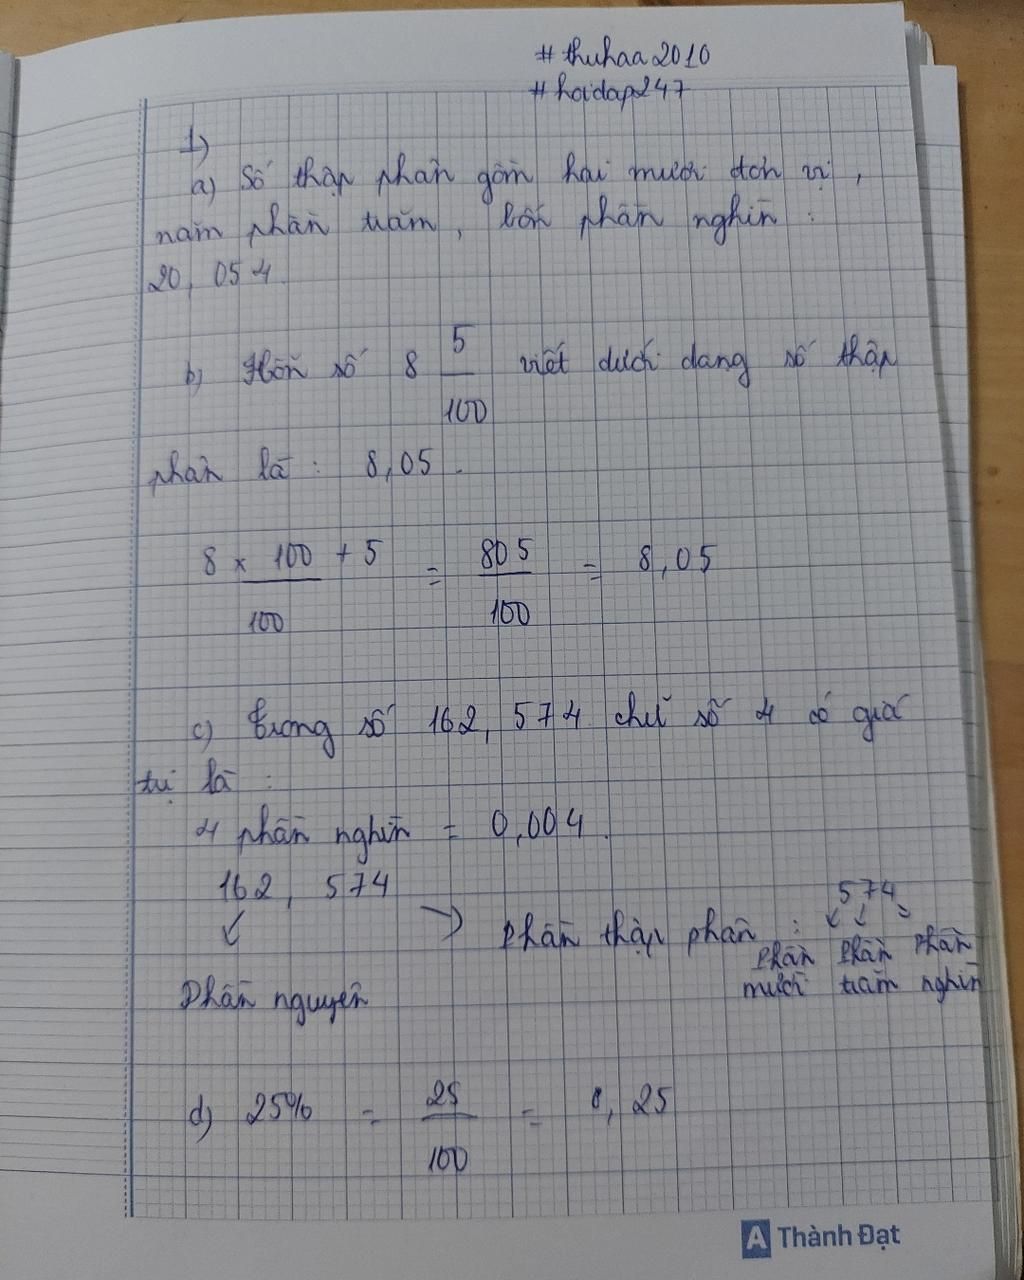 #thuhaa2010
#hoidap247
1)
a) Số thập phân gồm hai mươi đơn vị,
năm phần trăm, bốn phần nghìn:
20,054.
b) Hỗn số 8 5/100 viết dưới dạng số thập
phân là: 8,05.
8 x 100 + 5 / 100 = 805/100 = 8,05
c) Trong số 162,574 chữ số 4 có giá
trị là:
4 phần nghìn = 0,004.
162, 574
574
↙ → Phần thập phân: ↙ ↓ ↘
Phần Phần Phần
Phần nguyên mười trăm nghìn
d) 25% = 25/100 = 0,25
A Thành Đạt